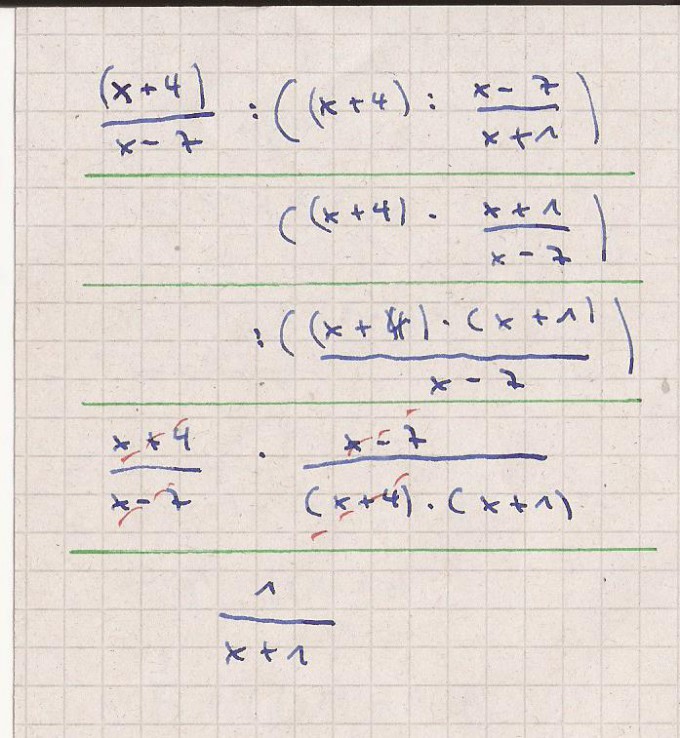 (x+4)/(x-7) : ((x+4) : (x-7)/(x+1))
((x+4) · (x+1)/(x-7))
: ((x+4) · (x+1)/(x-7))
(x+4)/(x-7) · (x-7)/((x+4) · (x+1))
1/(x+1)